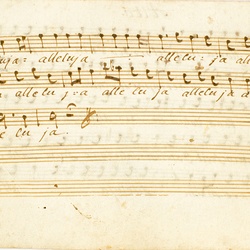 uja = alleluja alleluja al
alleluja alleluja alleluja a
e lu ja.